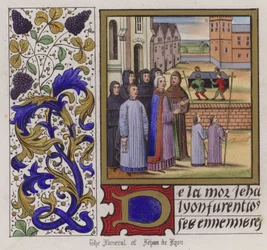 De la mor Jeha
lyon furent ios
ses ennemies
The Funeral of Jehan de Lyon